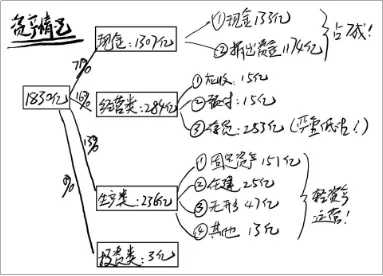 资产情况
现金：1307亿
①现金133亿
②拆出资金1174亿
占7成！
71%
1830亿
16%
经营类：284亿
①应收：15亿
②预付：15亿
③存货：253亿（严重低估！）
13%
生产类：236亿
①固定资产151亿
②在建25亿
③无形47亿
④其他13亿
轻资产
运营！
0%
投资类：3亿